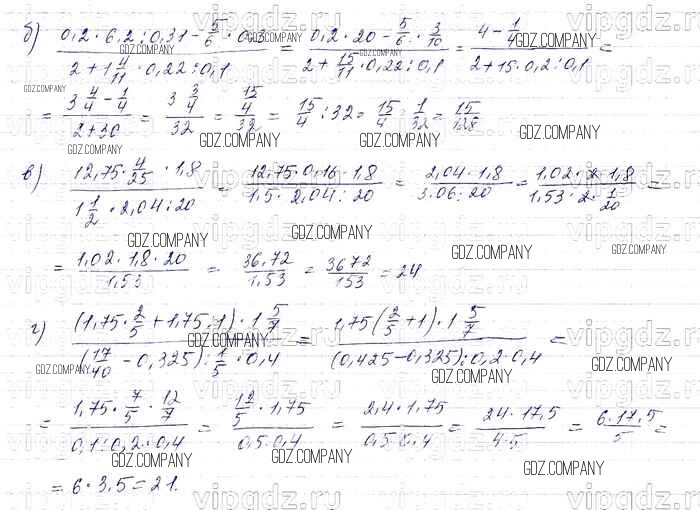 б) (0,2 · 6,2 : 0,31 − 5/6 · 0,3) / (2 + 1 4/11 · 0,22 : 0,1) = (0,2 · 20 − 5/6 · 3/10) / (2 + 15/11 · 0,22 : 0,1) = (4 − 1/4) / (2 + 15 · 0,2 : 0,1) =
= (3 4/4 − 1/4) / (2 + 30) = (3 3/4) / 32 = (15/4) / 32 = 15/4 : 32 = 15/4 · 1/32 = 15/128
в) (12,75 · 4/25 · 1,8) / (1 1/2 · 2,04 : 20) = (12,75 · 0,16 · 1,8) / (1,5 · 2,04 : 20) = (2,04 · 1,8) / (3,06 : 20) = (1,02 · 2 · 1,8) / (1,53 · 2 · 1/20) =
= (1,02 · 1,8 · 20) / 1,53 = 36,72 / 1,53 = 3672 / 153 = 24
г) ((1,75 · 2/5 + 1,75 : 1) · 1 5/7) / ((17/40 − 0,325) : 1/5 · 0,4) = (1,75 (2/5 + 1) · 1 5/7) / ((0,425 − 0,325) : 0,2 · 0,4) =
= (1,75 · 7/5 · 12/7) / (0,1 : 0,2 · 0,4) = (12/5 · 1,75) / (0,5 · 0,4) = (2,4 · 1,75) / (0,5 · 0,4) = (24 · 17,5) / (4 · 5) = (6 · 17,5) / 5 =
= 6 · 3,5 = 21.
GDZ.COMPANY
vipgdz.ru